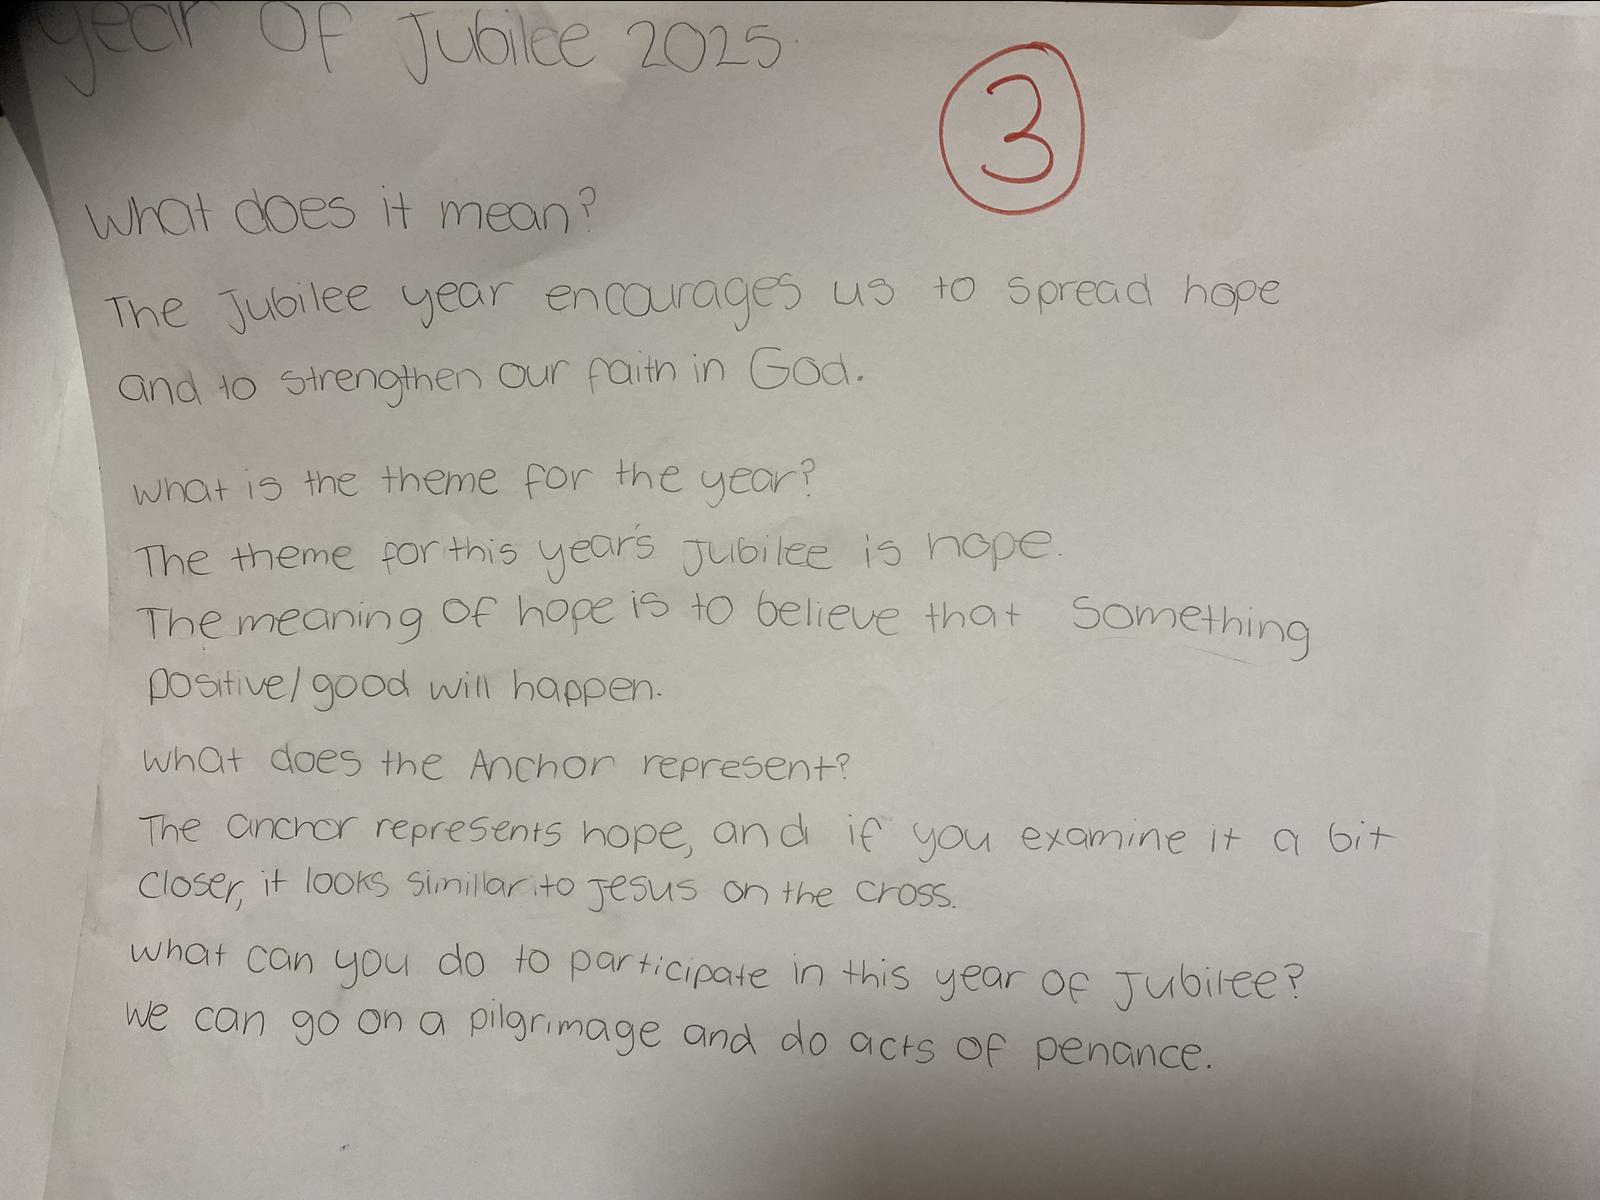 year of Jubilee 2025
3
What does it mean?
The Jubilee year encourages us to spread hope
and to strengthen our faith in God.
What is the theme for the year?
The theme for this year's Jubilee is hope.
The meaning of hope is to believe that Something
positive/good will happen.
What does the Anchor represent?
The anchor represents hope, and if you examine it a bit
closer, it looks simillar to Jesus on the cross.
What can you do to participate in this year of Jubilee?
We can go on a pilgrimage and do acts of penance.